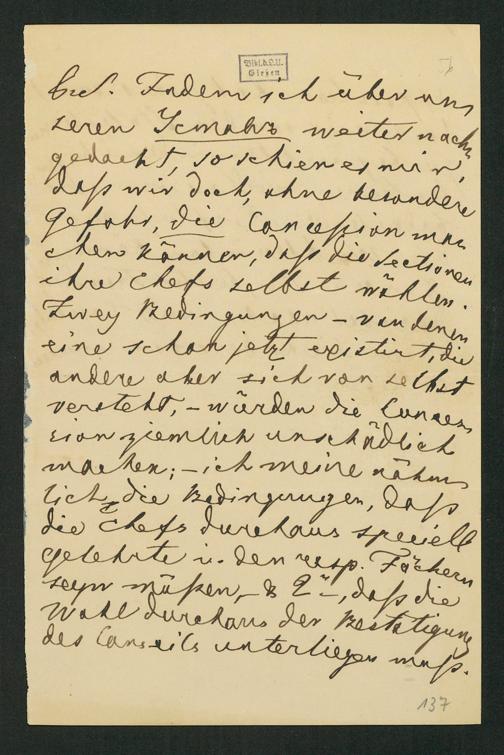 Bibl.d.L.U.
Gießen
7
Indem ich über un-
seren weiter nach-
gedacht, so schien es mir,
daß wir doch, ohne besondere
gefahr, die Concession ma-
chen können, daß die Sectionen
ihre Chefs selbst wählen.
Zwey Bedingungen – von denen
eine schon jetzt existirt, die
andere aber sich von selbst
versteht, – würden die Conces-
sion ziemlich unschädlich
machen; – ich meine nähm-
lich die Bedingungen, daß
die Chefs durchaus speciell
gelehrte in den resp. Fächern
seyn müßen, – & 2°–, daß die
Wahl durchaus der Bestätigung
des Conseils unterliegen muß.
137